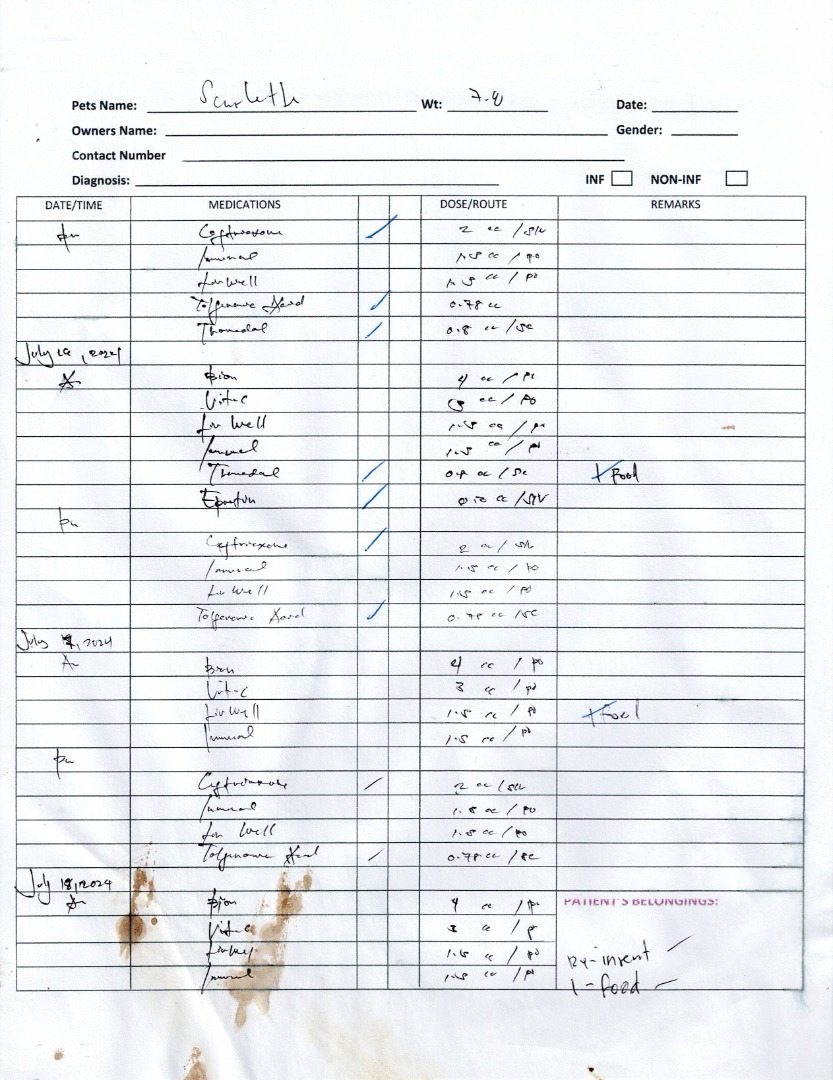 Pets Name: Scarleth Wt: 7.8 Date:
Owners Name: Gender:
Contact Number
Diagnosis: INF NON-INF
DATE/TIME MEDICATIONS DOSE/ROUTE REMARKS
pm Ceftriaxone 2 cc / SIV
Immunol 1.5 cc / po
Livwell 1.5 cc / po
Tolfenamic Acid 0.78 cc
0.8 cc / SC
July 2024
Bion 4 cc / po
Vit-C 3 cc / po
Liv Well 1.5 cc / po
Immunol 1.5 cc / po
cc / SC + Food
cc / SIV
pm
Ceftriaxone 2 cc / SIV
Immunol 1.5 cc / po
Liv Well 1.5 cc / po
Tolfenamic Acid 0.78 cc / SC
July 2024
Am Bion 4 cc / po
Vit-C 3 cc / po
Liv Well 1.5 cc / po + Food
Immunol 1.5 cc / po
pm
Ceftriaxone 2 cc / SIV
Immunol 1.5 cc / po
Liv Well 1.5 cc / po
Tolfenamic Acid 0.78 cc / SC
July 18, 2024
Am Bion 4 cc / po PATIENT'S BELONGINGS:
Vit-C 3 cc / po
Livwell 1.5 cc / po
Immunol 1.5 cc / po 1 - food